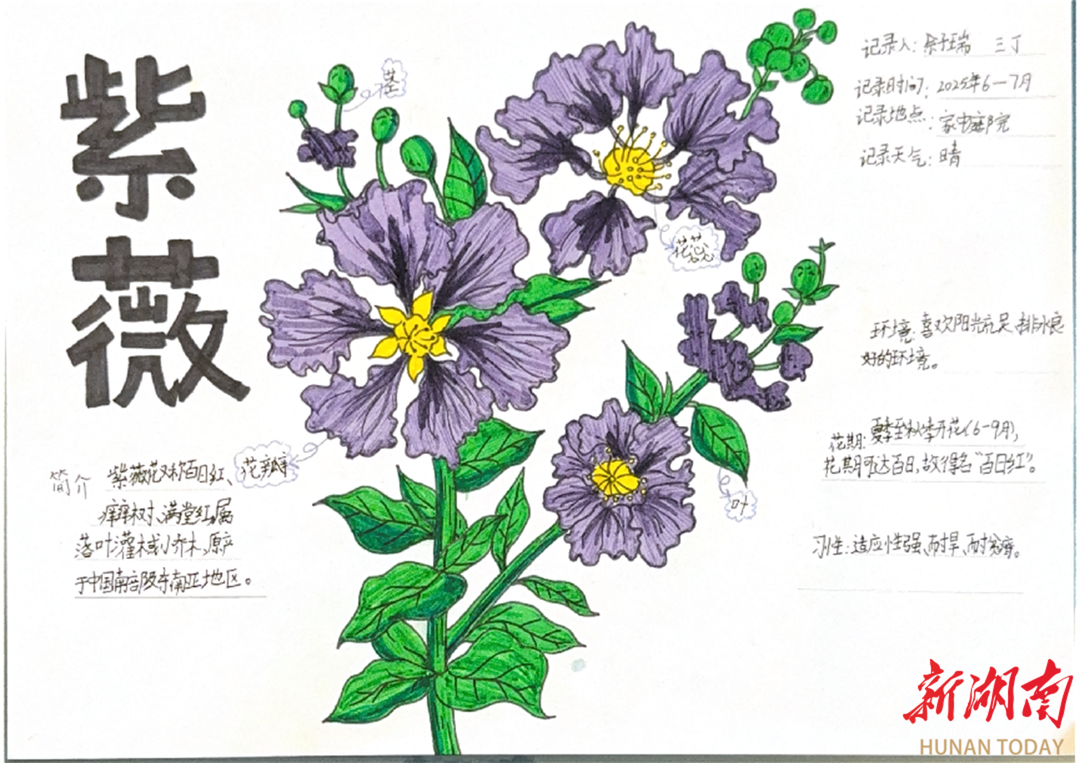 紫
薇
记录人: 三丁
记录时间: 2025年6—7月
记录地点: 家中庭院
记录天气: 晴
花蕊
环境: 喜欢阳光充足、排水良
好的环境。
花期: 夏季至秋季开花(6-9月),
花期可达百日,故得名“百日红”。
叶
习性: 适应性强、耐旱、耐贫瘠。
花瓣
简介 紫薇花又称百日红、
痒痒树、满堂红,属
落叶灌木或小乔木,原产
于中国南部及东南亚地区。
新湖南
HUNAN TODAY